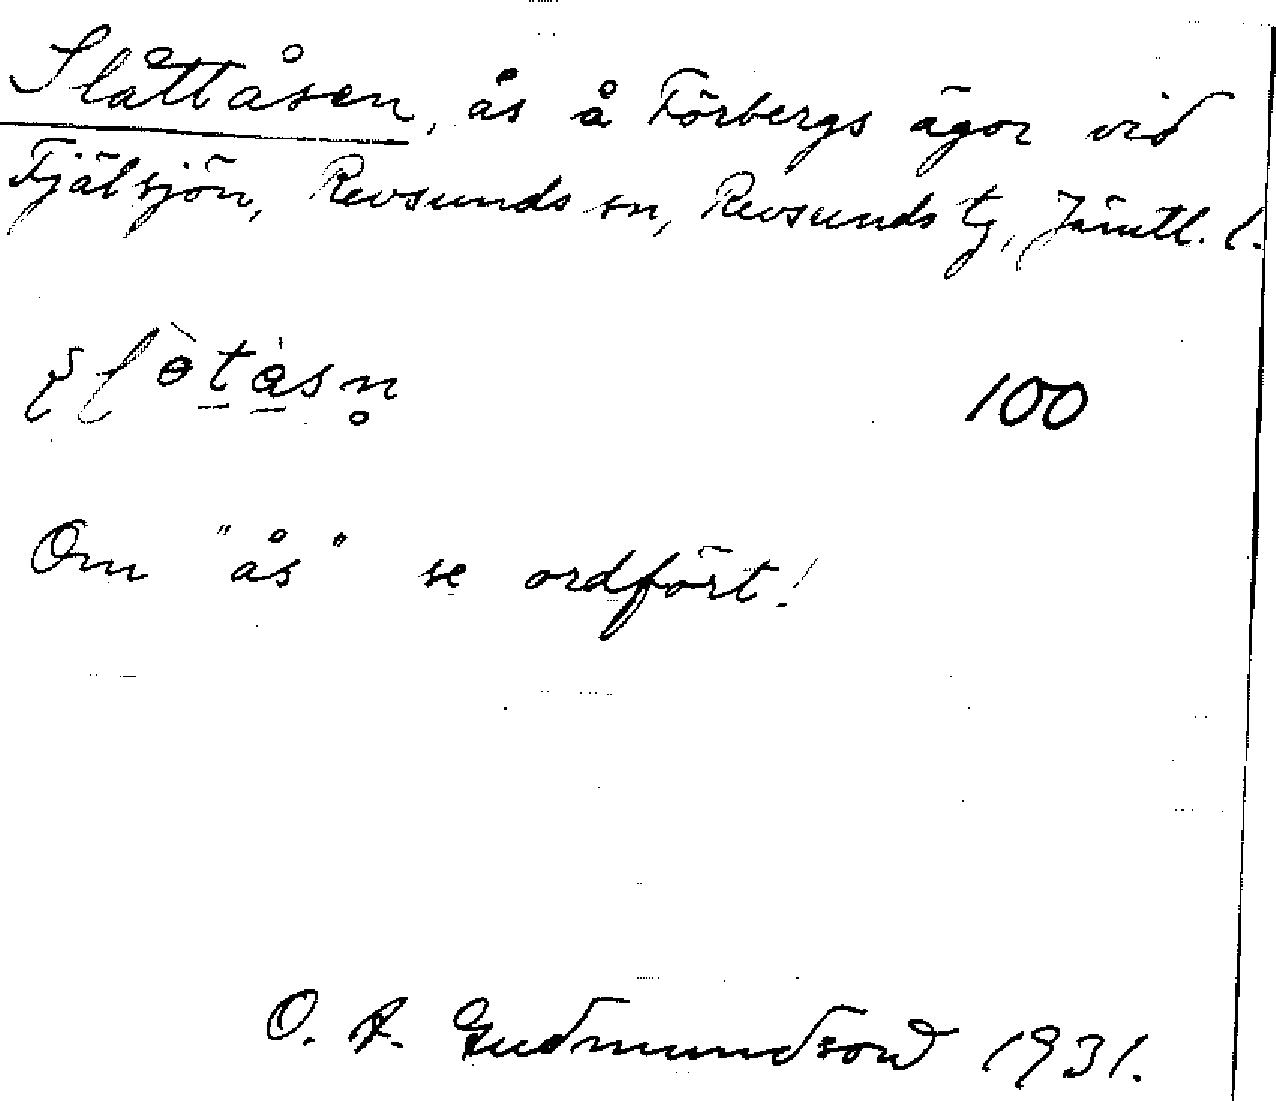 Slåttåsen, ås å Förbergs ägor vid
Fjälsjön, Revsunds sn, Revsunds tg, Jämtl. l.
100
Om "ås" se ordfört!
O. A. Gudmundson 1931.